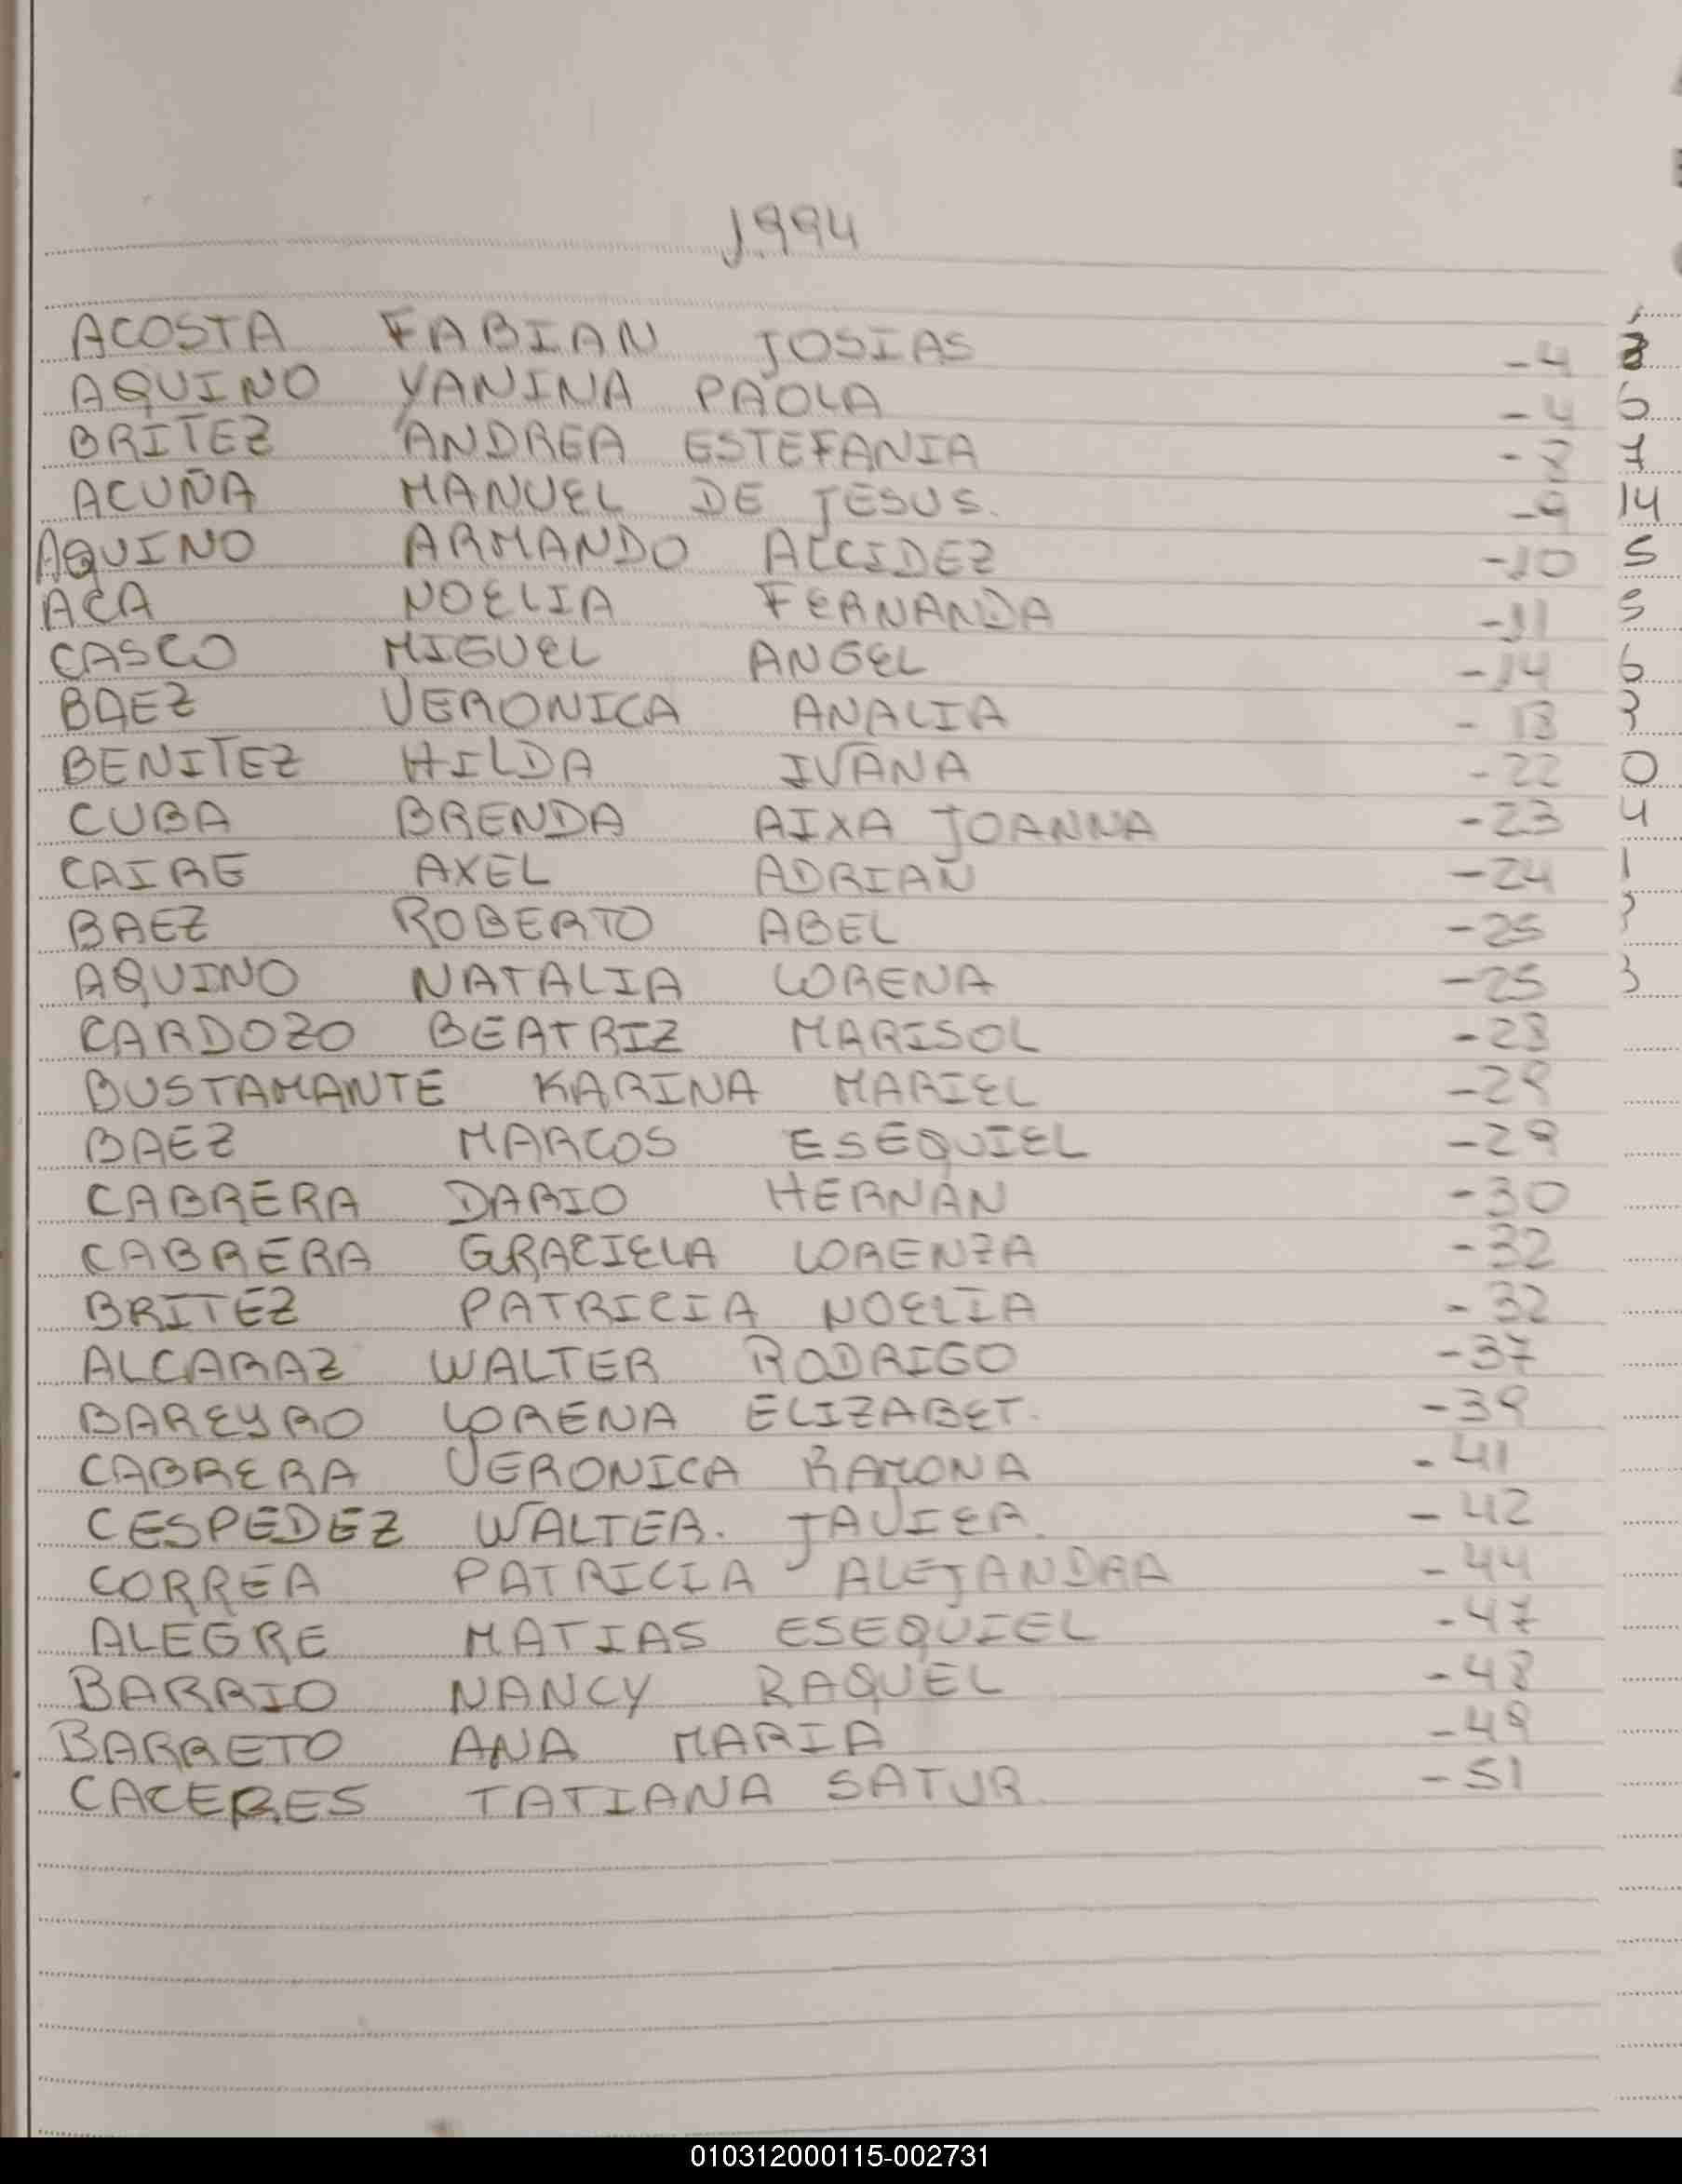 1994
ACOSTA FABIAN JOSIAS -4
AQUINO YANINA PAOLA -4
BRITEZ ANDREA ESTEFANIA -8
ACUÑA MANUEL DE JESUS. -9
AQUINO ARMANDO ALCIDEZ -10
ACA NOELIA FERNANDA -11
CASCO MIGUEL ANGEL -14
BAEZ VERONICA ANALIA - 18
BENITEZ HILDA IVANA -22
CUBA BRENDA AIXA JOANNA -23
CAIRE AXEL ADRIAN -24
BAEZ ROBERTO ABEL -25
AQUINO NATALIA LORENA -25
CARDOZO BEATRIZ MARISOL -28
BUSTAMANTE KARINA MARIEL -29
BAEZ MARCOS ESEQUIEL -29
CABRERA DARIO HERNAN -30
CABRERA GRACIELA LORENZA -32
BRITEZ PATRICIA NOELIA - 32
ALCARAZ WALTER RODRIGO -37
BAREYRO LORENA ELIZABET. -39
CABRERA VERONICA RAMONA - 41
CESPEDEZ WALTER. JAVIER. - 42
CORREA PATRICIA ALEJANDRA - 44
ALEGRE MATIAS ESEQUIEL -47
BARRIO NANCY RAQUEL -48
BARRETO ANA MARIA -49
CACERES TATIANA SATUR. -51
010312000115-002731